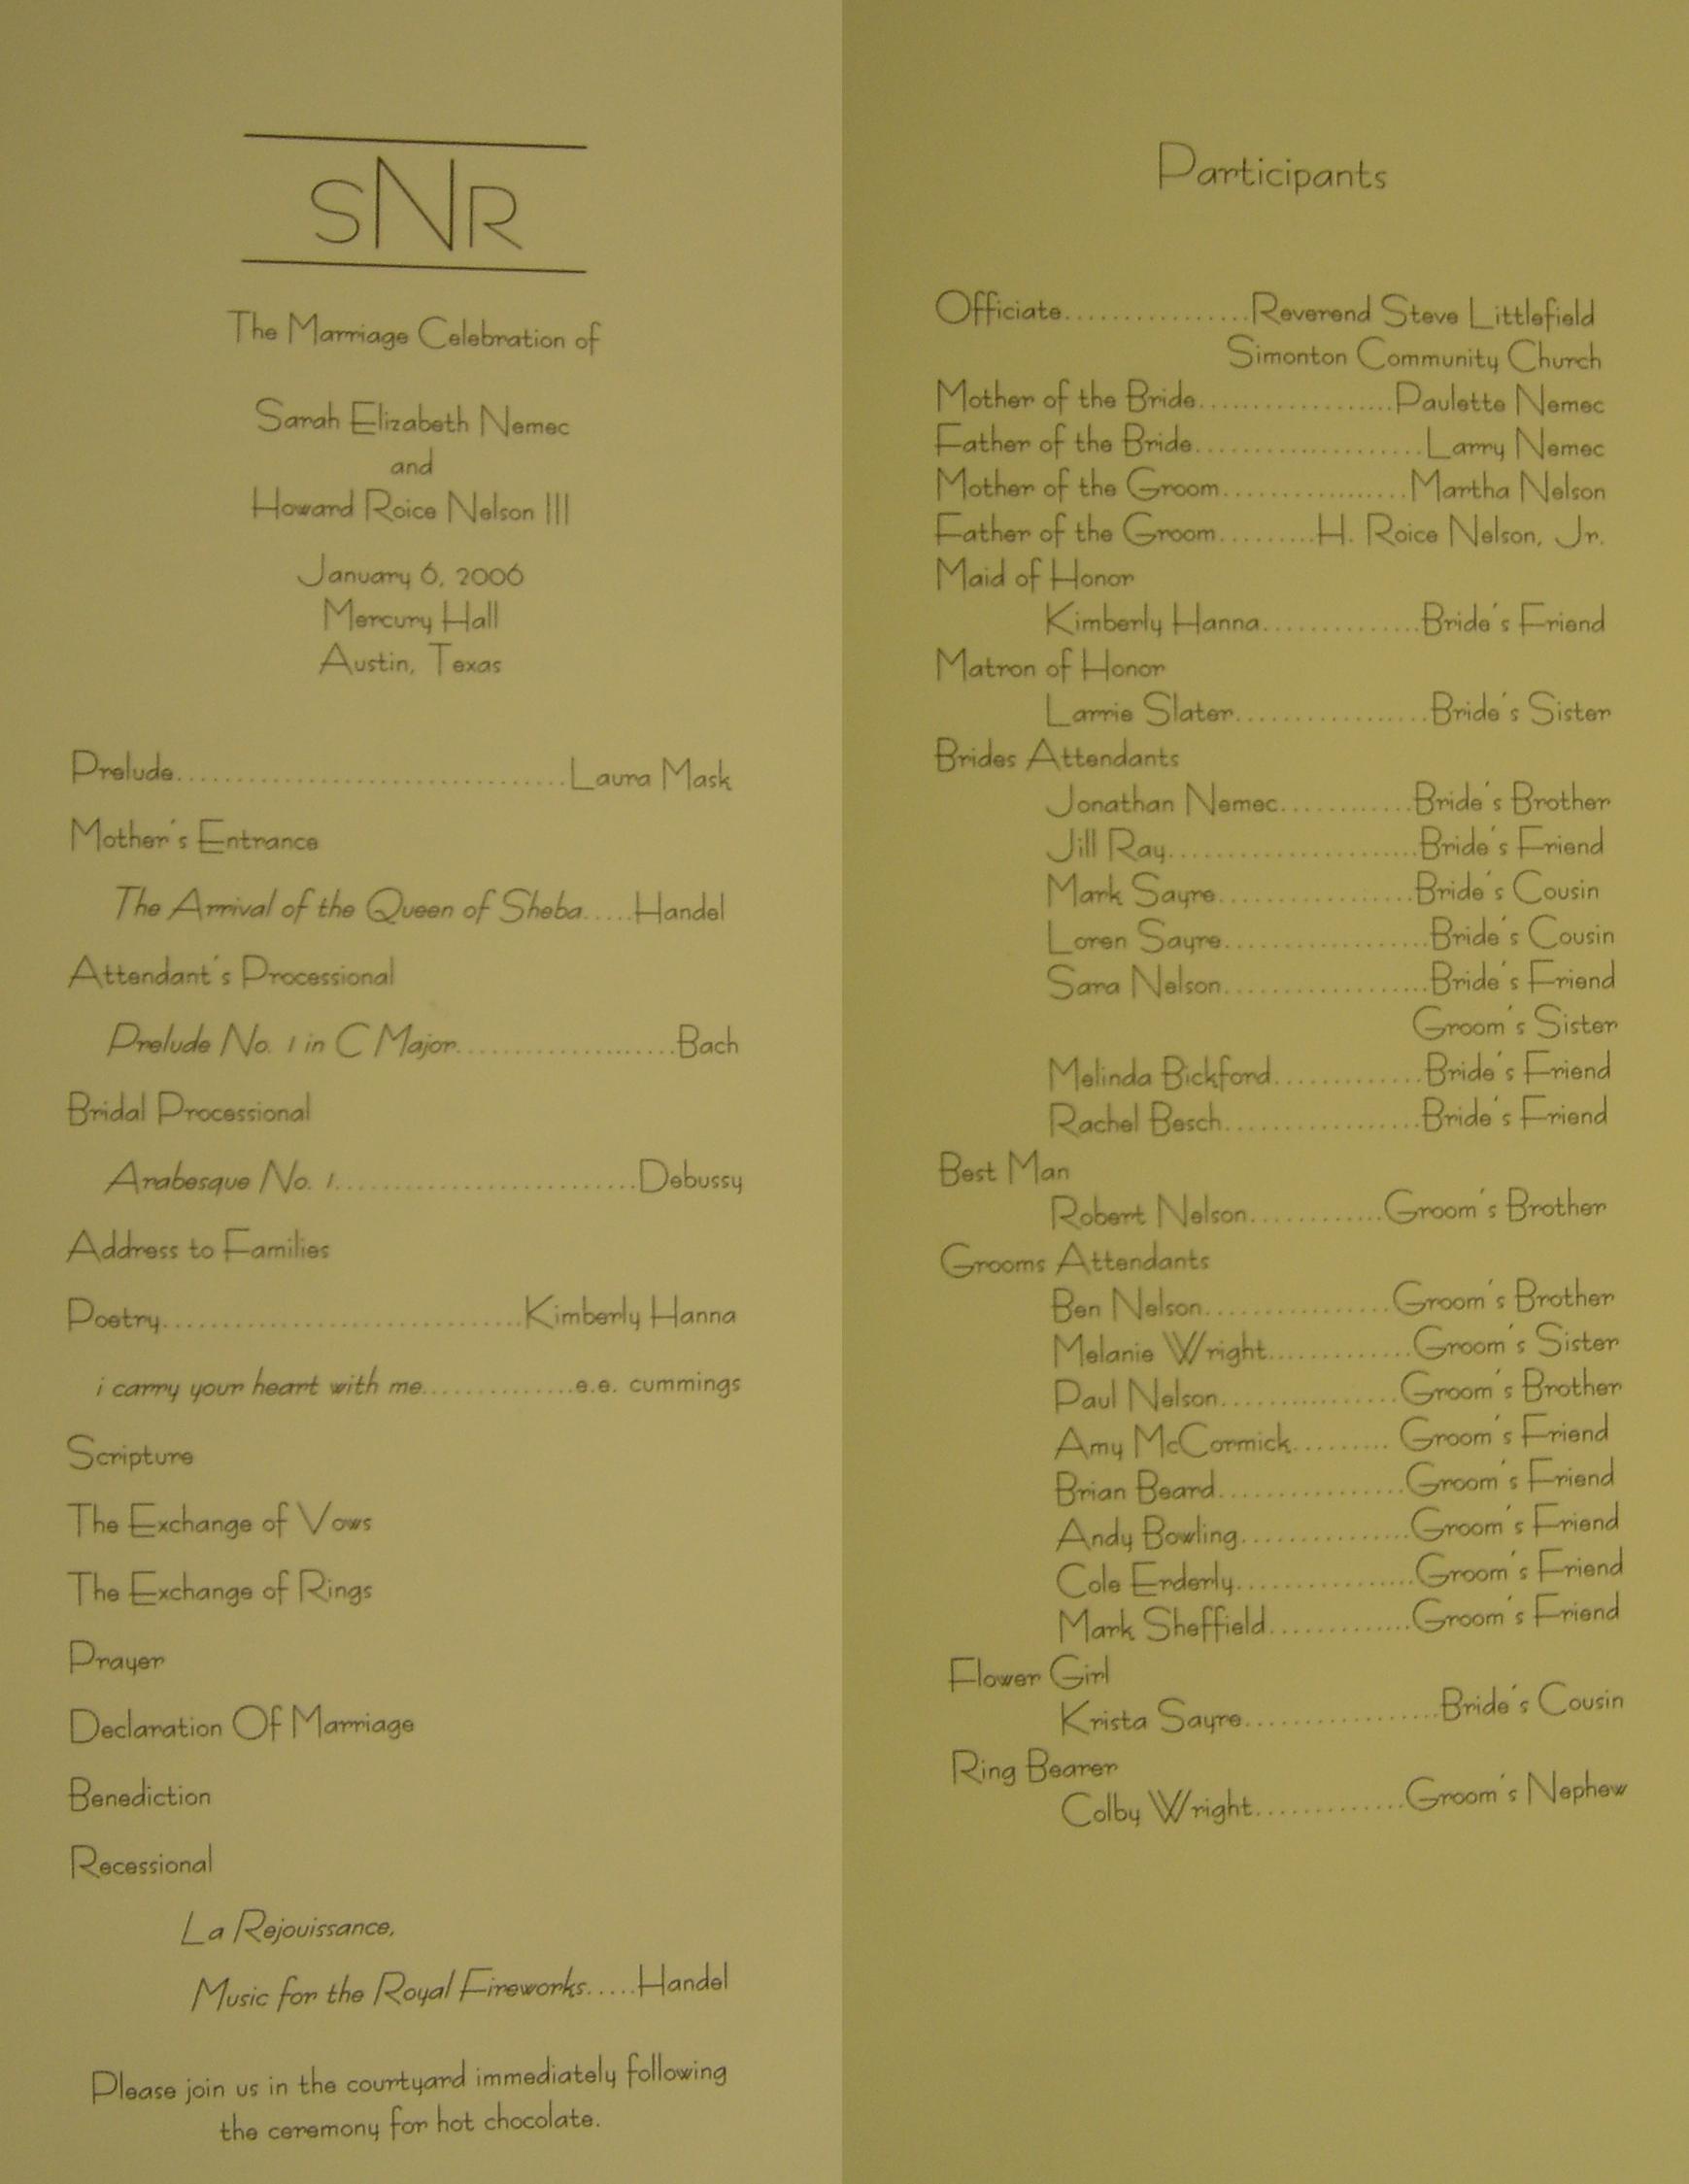 SNR
The Marriage Celebration of
Sarah Elizabeth Nemec
and
Howard Roice Nelson III
January 6, 2006
Mercury Hall
Austin, Texas
Prelude................................Laura Mask
Mother's Entrance
The Arrival of the Queen of Sheba.....Handel
Attendant's Processional
Prelude No. 1 in C Major......................Bach
Bridal Processional
Arabesque No. 1.........................Debussy
Address to Families
Poetry..............................Kimberly Hanna
i carry your heart with me.............e.e. cummings
Scripture
The Exchange of Vows
The Exchange of Rings
Prayer
Declaration Of Marriage
Benediction
Recessional
La Rejouissance,
Music for the Royal Fireworks.....Handel
Please join us in the courtyard immediately following
the ceremony for hot chocolate.
Participants
Officiate................Reverend Steve Littlefield
Simonton Community Church
Mother of the Bride..................Paulette Nemec
Father of the Bride.....................Larry Nemec
Mother of the Groom.................Martha Nelson
Father of the Groom.........H. Roice Nelson, Jr.
Maid of Honor
Kimberly Hanna..............Bride's Friend
Matron of Honor
Larrie Slater..................Bride's Sister
Brides Attendants
Jonathan Nemec............Bride's Brother
Jill Ray......................Bride's Friend
Mark Sayre...................Bride's Cousin
Loren Sayre...................Bride's Cousin
Sara Nelson...................Bride's Friend
Groom's Sister
Melinda Bickford.............Bride's Friend
Rachel Besch..................Bride's Friend
Best Man
Robert Nelson.............Groom's Brother
Grooms Attendants
Ben Nelson.................Groom's Brother
Melanie Wright.............Groom's Sister
Paul Nelson.................Groom's Brother
Amy McCormick......... Groom's Friend
Brian Beard.................Groom's Friend
Andy Bowling...............Groom's Friend
Cole Erderly.................Groom's Friend
Mark Sheffield.............Groom's Friend
Flower Girl
Krista Sayre..................Bride's Cousin
Ring Bearer
Colby Wright.............Groom's Nephew